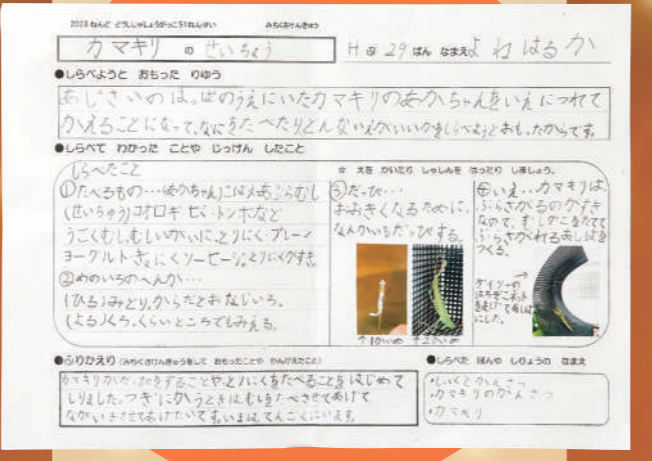 2023ねんど どうししゃしょうがっこう1ねんせい みちくさけんきゅう
カマキリ の せいちょう
H の 29 ばん なまえ よねはるか
●しらべようと おもった りゆう
あじさいのはっぱのうえにいたカマキリのあかちゃんをいえにつれて
かえることになって、なにをたべたりどんないえがいいかをしらべようとおもったからです。
●しらべて わかった ことや じっけん したこと
しらべたこと
①たべるもの…(あかちゃん)こばえ、あぶらむし
(せいちゅう)コオロギ セミ トンボなど
うごくむし、むしいがいに、とりにく プレーン
ヨーグルト ぎょにくソーセージ。とりにくがすき
②めのいろのへんか…
(ひる)みどり。からだとおなじいろ。
(よる)くろ。くらいところでもみえる。
☆ えを かいたり しゃしんを はったり しましょう。
③だっぴ…
おおきくなるために、
なんかいもだっぴする。
↑1かいめ ↑2かいめ
④いえ…カマキリは、
ぶらさがるのがすき
なので、むしかごをたてて
ぶらさがれるあしばを
つくる。
ダイソーの
はちぞこネット
にした。
●ふりかえり (みちくさけんきゅうをして おもったことや かんがえたこと)
カマキリがだっぴをすることや、とりにくをたべることをはじめて
しりました。つぎにかうときはむしをたべさせてあげて
ながいきさせてあげたいです。いまはてんごくにいます。
●しらべた ほんや しりょうの なまえ
・しいくとかんさつ
・カマキリのかんさつ
・カマキリ